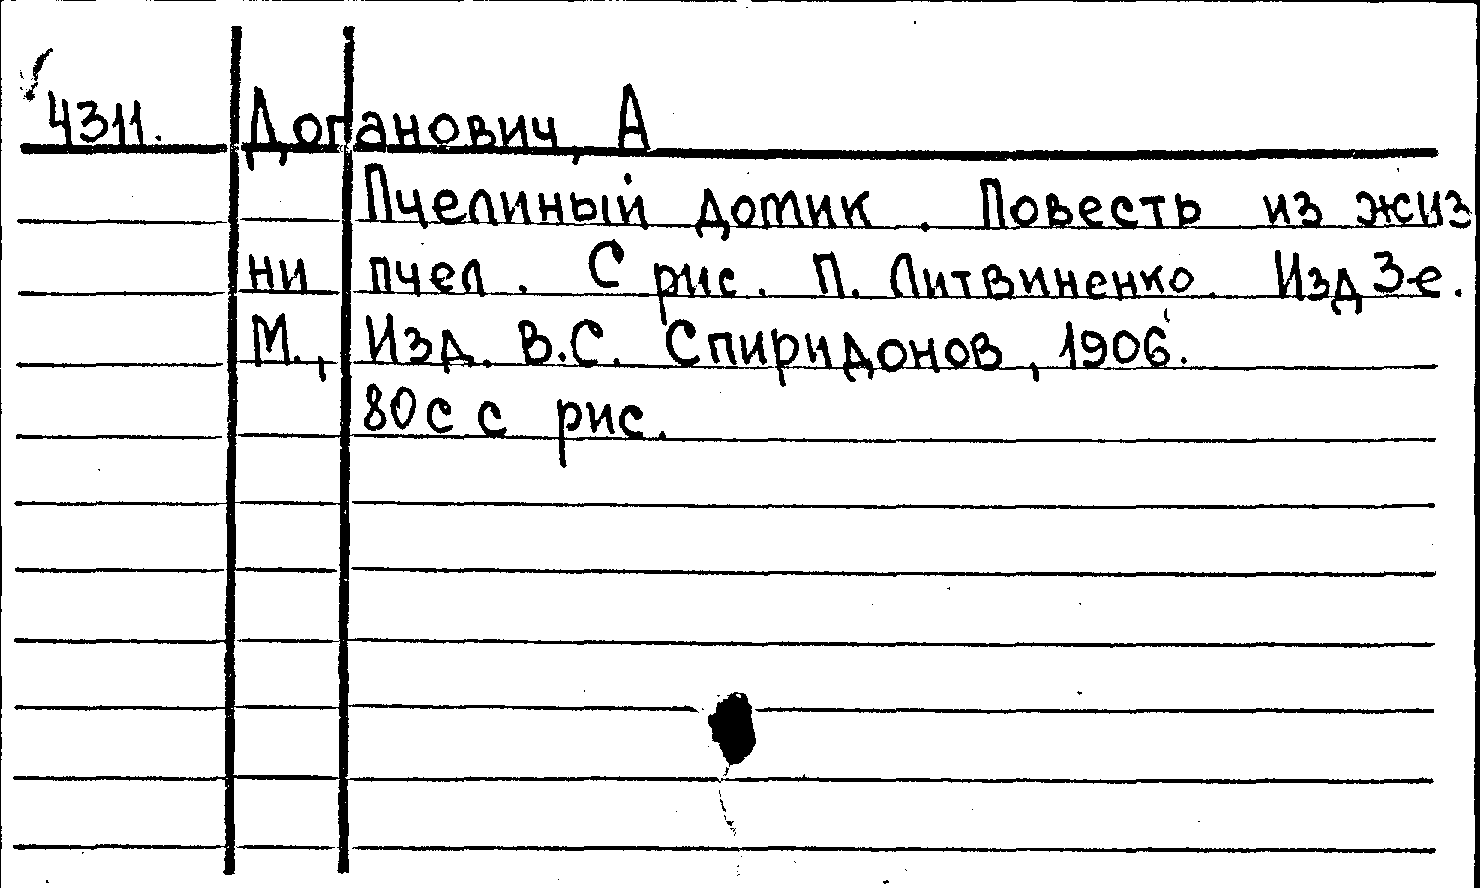 4311. Доганович, А
Пчелиный домик. Повесть из жиз
ни пчел. С рис. П. Литвиненко. Изд 3-е.
М., Изд. В.С. Спиридонов, 1906.
80с с рис.